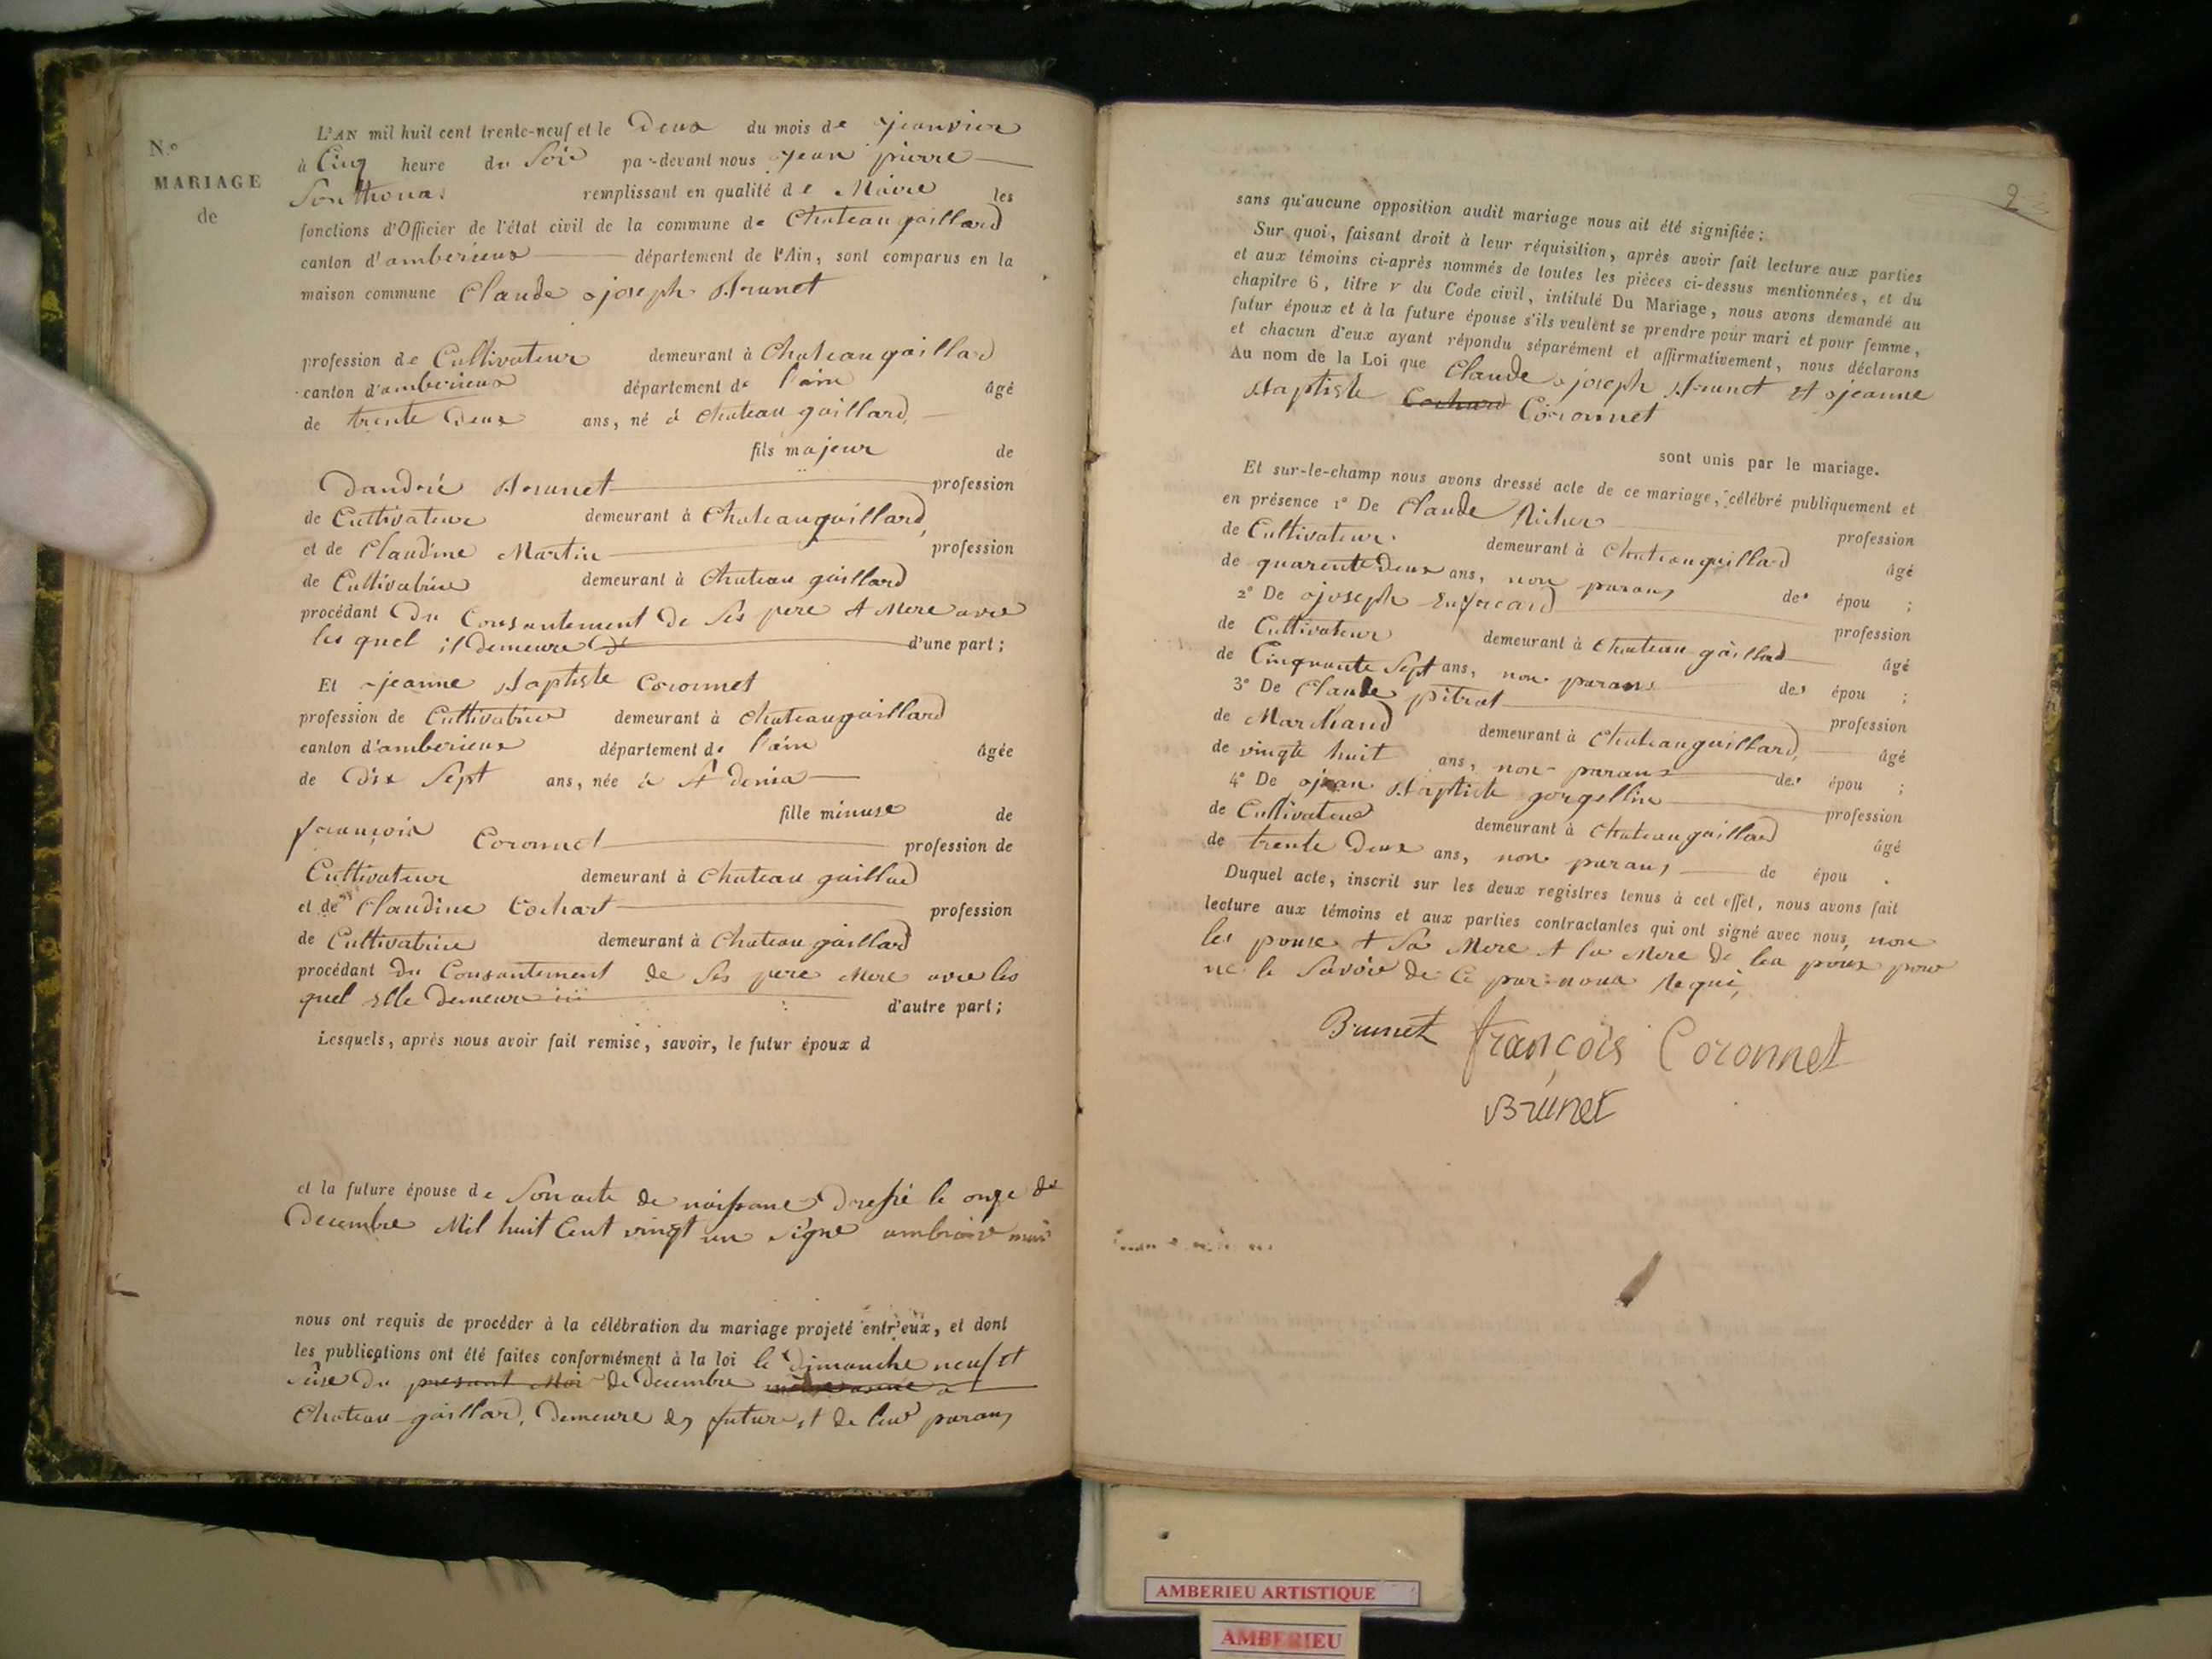 N.°
MARIAGE
de
L'AN mil huit cent trente-neuf et le Deux du mois de jeanvier
à Cinq heure du Soir par-devant nous jean pierre
remplissant en qualité de Maire les
fonctions d'Officier de l'état civil de la commune de Chateau gaillard
canton d'amberieux département de l'Ain, sont comparus en la
maison commune Claude joseph Brunet
profession de Cultivateur demeurant à Chateau gaillard
canton d'amberieux département de l'ain âgé
de trente Deux ans, né à Chateau gaillard,
fils majeur de
Dandré Brunet profession
de Cultivateur demeurant à Chateaugaillard,
et de Claudine Martin profession
de Cultivatrice demeurant à Chateau gaillard
procédant Du Consantement De Ses pere et Mere avec
les quel il Demeure d'une part;
Et jeanne Baptiste Coronnet
profession de Cultivatrice demeurant à Chateaugaillard
canton d'amberieux département de l'ain âgée
de Dix Sept ans, née à St denis
fille mineure de
françois Coronnet profession de
Cultivateur demeurant à Chateau gaillard
et de Claudine Cochart profession
de Cultivatrice demeurant à Chateau gaillard
procédant Du Consantement de Ses pere Mere avec les
quel Elle Demeure d'autre part;
Lesquels, après nous avoir fait remise, savoir, le futur époux d
et la future épouse de Son acte de naissance Dressé le onze de
Decembre Mil huit Cent vingt un signe ambroise
nous ont requis de procéder à la célébration du mariage projeté entr'eux, et dont
les publications ont été faites conformément à la loi le Dimanche neuf et
Du presant Moi de Decembre
Chateau-gaillard, Demeure des future et de leur parans
2
sans qu'aucune opposition audit mariage nous ait été signifiée;
Sur quoi, faisant droit à leur réquisition, après avoir fait lecture aux parties
et aux témoins ci-après nommés de toutes les pièces ci-dessus mentionnées, et du
chapitre 6, titre v du Code civil, intitulé Du Mariage, nous avons demandé au
futur époux et à la future épouse s'ils veulent se prendre pour mari et pour femme,
et chacun d'eux ayant répondu séparément et affirmativement, nous déclarons
Au nom de la Loi que Claude joseph Brunet et jeanne
Baptiste Cochard Coronnet
sont unis par le mariage.
Et sur-le-champ nous avons dressé acte de ce mariage, célébré publiquement et
en présence 1° De Claude Richer profession
de Cultivateur demeurant à Chateaugaillard âgé
de quarente Deux ans, non parans des épou ;
2° De joseph profession
de Cultivateur demeurant à Chateau gaillard âgé
de Cinquante Sept ans, non parans des épou ;
3° De Claude pitrat profession
de Marchand demeurant à Chateaugaillard, âgé
de vingte huit ans, non parans des épou ;
4° De jean Baptiste gorgellin profession
de Cultivateur demeurant à Chateaugaillard âgé
de trente Deux ans, non parans de épou .
Duquel acte, inscrit sur les deux registres tenus à cet effet, nous avons fait
lecture aux témoins et aux parties contractantes qui ont signé avec nous, non
les pouse et Sa Mere et la Mere de lea poux pour
ne le Savoir de Ce par nous
Brunet françois Coronnet
Brunet
AMBERIEU ARTISTIQUE
AMBERIEU